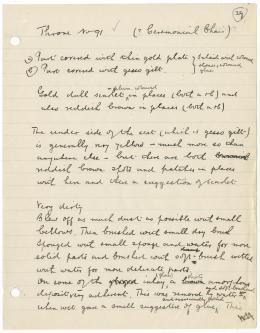 Throne No 91 ("Ceremonial Chair")
① Part covered with thin gold plate
② Part covered with gesso gilt
Gold dull scarlet in places (both a & b) and
also reddish brown in places (both a & b)
The under side of the seat (which is gesso gilt)
is generally very yellow - much more so than
anywhere else - but there are both
reddish brown spots and patches in places
with here and there a suggestion of scarlet.
Very dirty
Blew off as much dust as possible with small
bellows. Then brushed with small dry brush
Sponged with small sponge and water for more
solid parts and brushed with soft brush wetted
with water for more delicate parts.
On some of the a brown amorphous
deposit very adherent. This was removed by water
when wet gave a small suggestion of glue. This